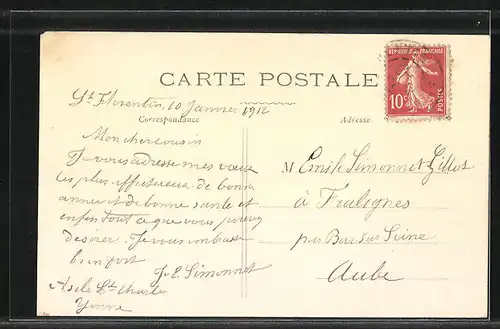 CARTE POSTALE
St Florentin, 10 Janvier 1912
Correspondance
Adresse
REPUBLIQUE FRANÇAISE
10c
POSTES
Mon cher cousin
Je vous adresse mes vœux
les plus affectueux de bonne
année et de bonne santé et
enfin tout ce que vous pouvez
désirer. Je vous embrasse
bien fort
J. E. Simonnet
Asile St Charles
Yonne
M Emile Simonnot Gillos
à Fralignes
par Bar sur Seine
Aube